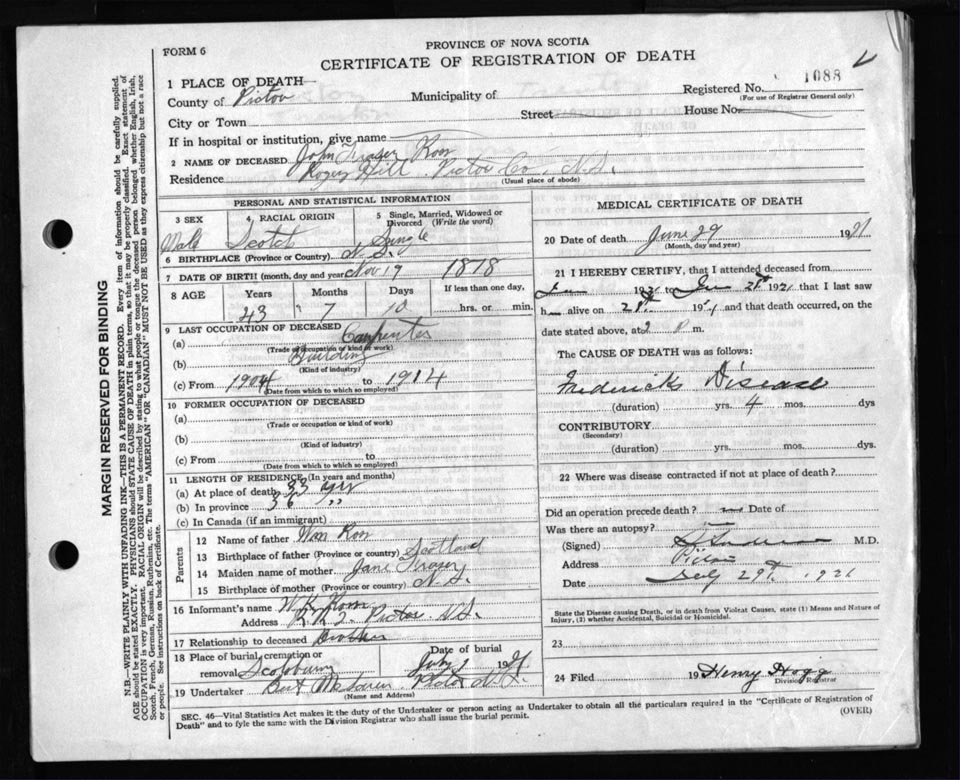 FORM 6
PROVINCE OF NOVA SCOTIA
CERTIFICATE OF REGISTRATION OF DEATH
1088
1 PLACE OF DEATH
Registered No.
(For use of Registrar General only)
County of Pictou Municipality of
City or Town Street House No.
If in hospital or institution, give name
2 NAME OF DECEASED John Fraser Ross
Residence Rogers Hill Pictou Co. N.S.
(Usual place of abode)
PERSONAL AND STATISTICAL INFORMATION
3 SEX Male
4 RACIAL ORIGIN Scotch
5 Single, Married, Widowed or Divorced (Write the word) Single
6 BIRTHPLACE (Province or Country) N.S.
7 DATE OF BIRTH (month, day and year) Nov 19 1878
8 AGE Years Months Days If less than one day,
43 7 10 hrs. or min.
9 LAST OCCUPATION OF DECEASED
(a) Carpenter
(Trade or occupation or kind of work)
(b) Building
(Kind of industry)
(c) From 1904 to 1914
(Date from which to which so employed)
10 FORMER OCCUPATION OF DECEASED
(a)
(Trade or occupation or kind of work)
(b)
(Kind of industry)
(c) From to
(Date from which to which so employed)
11 LENGTH OF RESIDENCE (In years and months)
(a) At place of death 33 yrs
(b) In province 36 "
(c) In Canada (if an immigrant)
Parents
12 Name of father Wm Ross
13 Birthplace of father (Province or country) Scotland
14 Maiden name of mother Jane Fraser
15 Birthplace of mother (Province or country) N.S.
16 Informant's name
Address R.R. 2. Pictou N.S.
17 Relationship to deceased Brother
18 Place of burial, cremation or removal Scotsburn
Date of burial July 1 1921
19 Undertaker Pictou N.S.
(Name and Address)
MEDICAL CERTIFICATE OF DEATH
20 Date of death June 29 1921
(Month, day and year)
21 I HEREBY CERTIFY, that I attended deceased from
1921 to 1921 that I last saw
h alive on 192 and that death occurred, on
date stated above, at 2 P m.
The CAUSE OF DEATH was as follows:
Fredericks Disease
(duration) yrs. 4 mos. dys
CONTRIBUTORY
(Secondary)
(duration) yrs. mos. dys.
22 Where was disease contracted if not at place of death?
Did an operation precede death? no Date of
Was there an autopsy?
(Signed) M.D.
Address Pictou
Date July 29th 1921
State the Disease causing Death, or in death from Violent Causes, state (1) Means and Nature of
Injury, (2) whether Accidental, Suicidal or Homicidal.
23
24 Filed 19 Henry Hogg
Division Registrar
SEC. 46—Vital Statistics Act makes it the duty of the Undertaker or person acting as Undertaker to obtain all the particulars required in the "Certificate of Registration of
Death" and to fyle the same with the Division Registrar who shall issue the burial permit.
(OVER)
MARGIN RESERVED FOR BINDING
N.B.—WRITE PLAINLY WITH UNFADING INK—THIS IS A PERMANENT RECORD. Every item of information should be carefully supplied.
AGE should be stated EXACTLY. PHYSICIANS should STATE CAUSE OF DEATH in plain terms, so that it may be properly classified. Exact statement of
OCCUPATION is very important. RACIAL ORIGIN will be described by stating to what people or tongue the deceased person belonged whether English, Irish,
Scotch, French, German, Russian, Ruthenian, etc. The terms "AMERICAN" OR "CANADIAN" MUST NOT BE USED as they express citizenship but not a race
or people. See instructions on back of Certificate.